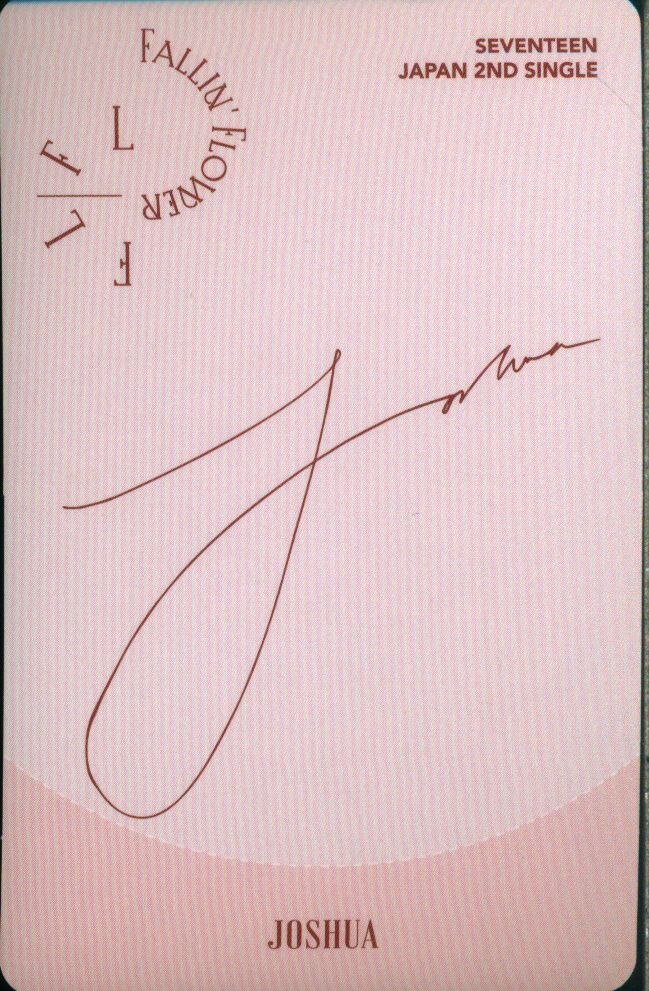 FALLIN' FLOWER
L
F
L
F
SEVENTEEN
JAPAN 2ND SINGLE
Joshua
JOSHUA